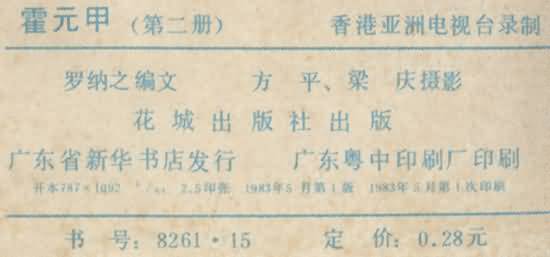 霍元甲 (第二册) 香港亚洲电视台录制
罗纳之编文 方 平、梁 庆摄影
花城出版社出版
广东省新华书店发行 广东粤中印刷厂印刷
开本787×1092 2.5印张 1983年5月第1版 1983年5月第1次印刷
书 号:8261·15 定 价:0.28元